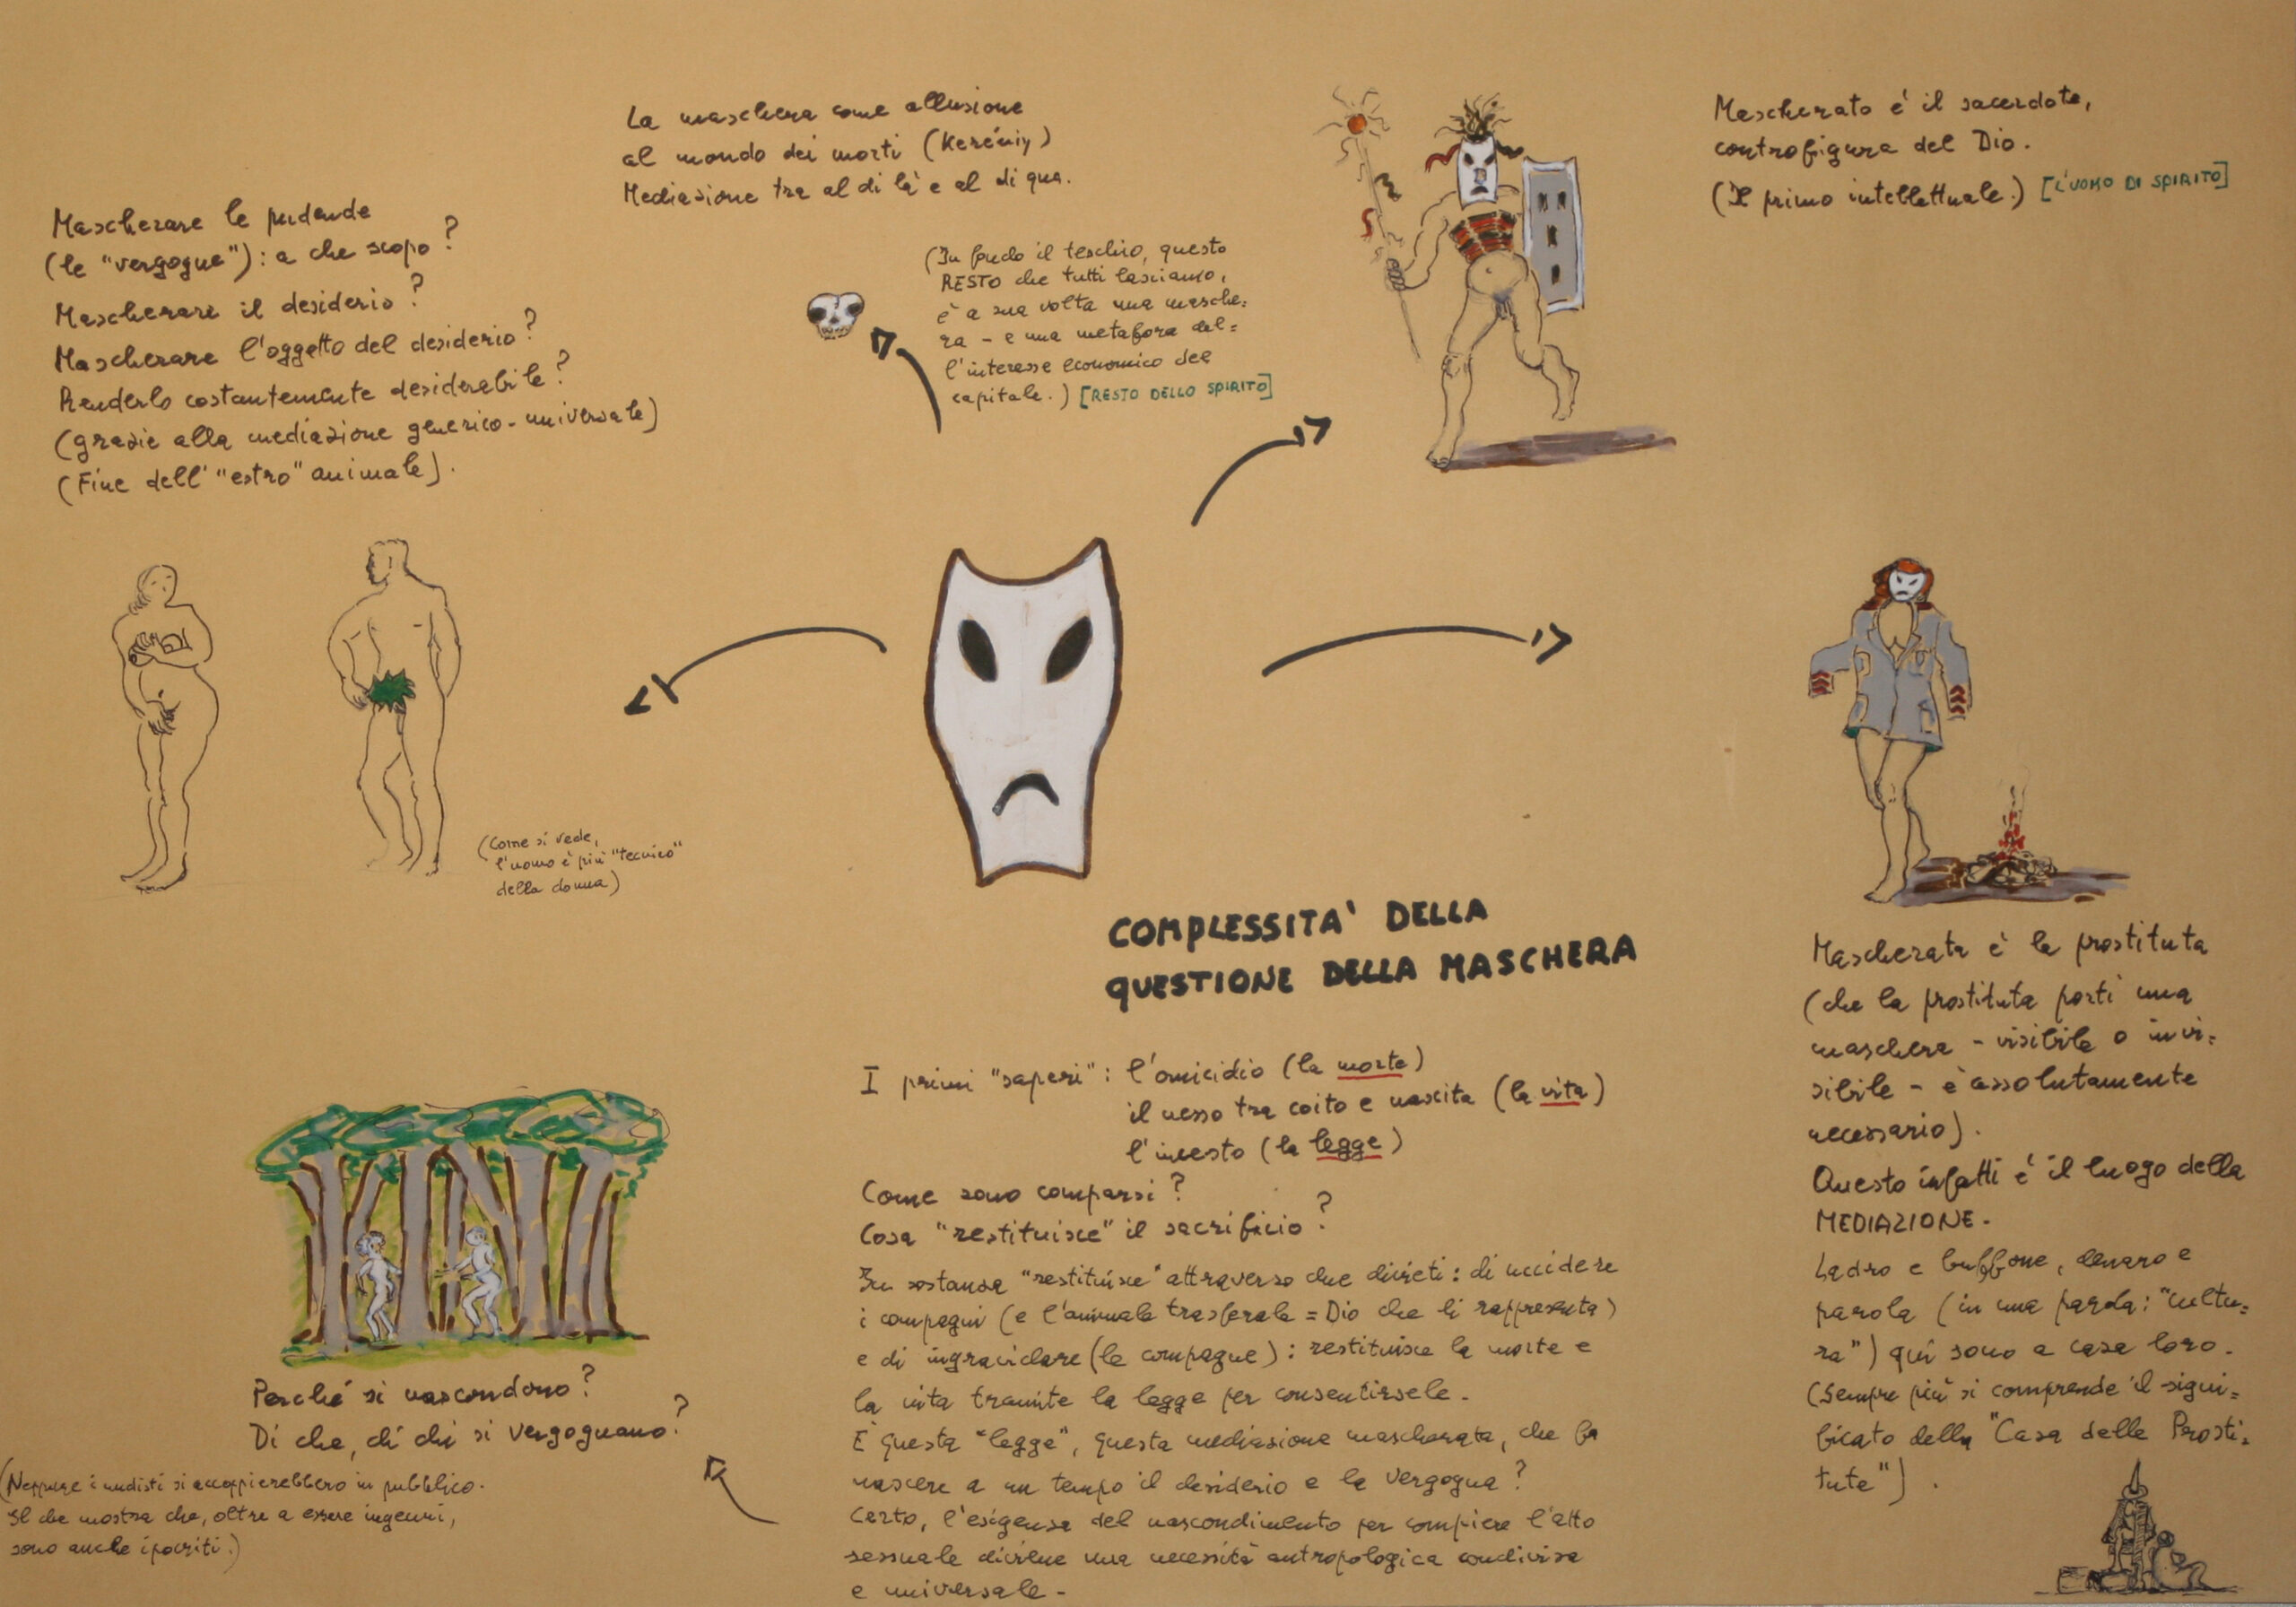 La maschera come allusione
al mondo dei morti (Keréniy)
Mediazione tra al di là e al di qua.
(In fondo il teschio, questo
RESTO che tutti lasciamo,
è a sua volta una masche=
ra - e una metafora del=
l'interesse economico del
capitale.) [RESTO DELLO SPIRITO]
Mascherato è il sacerdote,
controfigura del Dio.
(Il primo intellettuale.) [L'UOMO DI SPIRITO]
Mascherare le pudende
(le "vergogne"): a che scopo?
Mascherare il desiderio?
Mascherare l'oggetto del desiderio?
Renderlo costantemente desiderabile?
(grazie alla mediazione generico-universale)
(Fine dell' "estro" animale).
(Come si vede,
l'uomo è più "tecnico"
della donna)
COMPLESSITA' DELLA
QUESTIONE DELLA MASCHERA
I primi "saperi": l'omicidio (la morte)
il nesso tra coito e nascita (la vita)
l'incesto (la legge)
Come sono comparsi?
Cosa "restituisce" il sacrificio?
In sostanza "restituisce" attraverso due divieti: di uccidere
i compagni (e l'animale trasferale = Dio che li rappresenta)
e di ingravidare (le compagne): restituisce la morte e
la vita tramite la legge per consentirsele.
È questa "legge", questa mediazione mascherata, che fa
nascere a un tempo il desiderio e la vergogna?
Certo, l'esigenza del nascondimento per compiere l'atto
sessuale divine una necessità antropologica condivisa
e universale.
Mascherata è la prostituta
(che la prostituta porti una
maschera - visibile o invi=
sibile - è assolutamente
necessario).
Questo infatti è il luogo della
MEDIAZIONE.
Ladro e buffone, denaro e
parola (in una parola: "cultu=
ra") qui sono a casa loro.
(Sempre più si comprende il signi=
ficato della "Casa delle Prosti=
tute").
Perché si nascondono?
Di che, di chi si vergognano?
(Neppure i nudisti si accoppierebbero in pubblico.
Il che mostra che, oltre a essere ingenui,
sono anche ipocriti.)